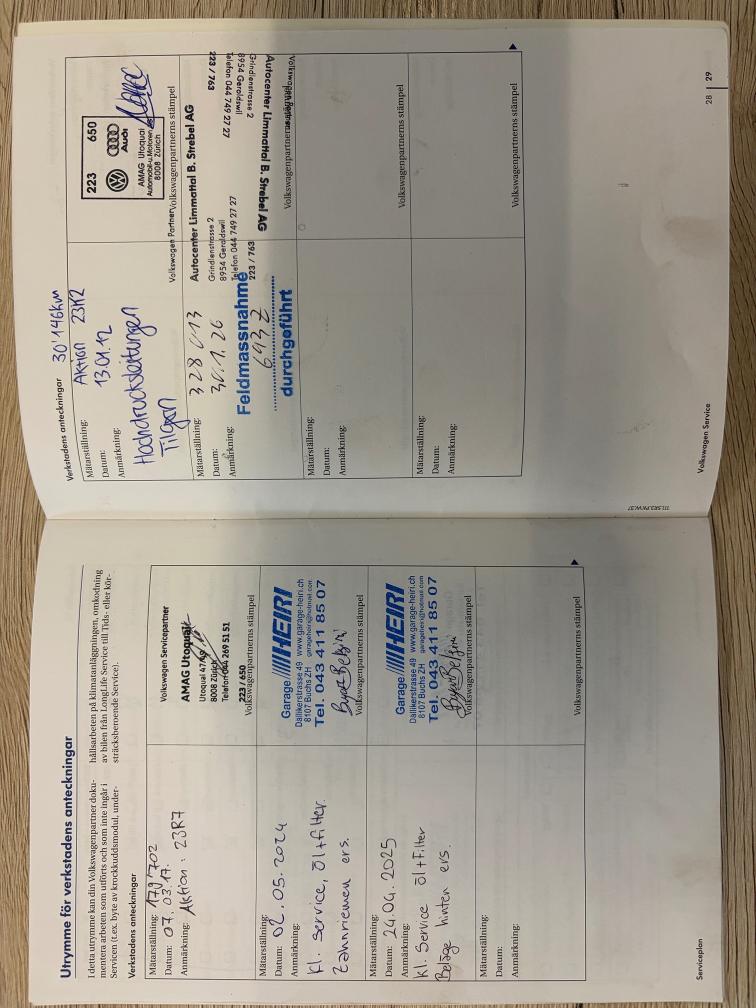 Utrymme för verkstadens anteckningar
I detta utrymme kan din Volkswagenpartner doku-
mentera arbeten som utförts och som inte ingår i
Servicen (t.ex. byte av krockkuddsmodul, under-
hållsarbeten på klimatanläggningen, omkodning
av bilen från LongLife Service till Tids- eller kör-
sträcksberoende Service).
Verkstadens anteckningar
Mätarställning: 179'702
Datum: 07.03.17.
Anmärkning: Aktion: 23R7
Volkswagen Servicepartner
AMAG Utoquai
Utoquai 47/49
8008 Zürich
Telefon 044 269 51 51
223 / 650
Volkswagenpartnerns stämpel
Mätarställning:
Datum: 02.05.2024
Anmärkning:
Kl. Service, Öl+filter.
Zahnriemen ers.
Garage HEIRI
Dällikerstrasse 49 www.garage-heiri.ch
8107 Buchs ZH garageheiri@hotmail.com
Tel. 043 411 85 07
Volkswagenpartnerns stämpel
Mätarställning:
Datum: 24.04.2025
Anmärkning:
Kl. Service Öl+Filter
Beläge hinten ers.
Garage HEIRI
Dällikerstrasse 49 www.garage-heiri.ch
8107 Buchs ZH garageheiri@hotmail.com
Tel. 043 411 85 07
Volkswagenpartnerns stämpel
Mätarställning:
Datum:
Anmärkning:
Volkswagenpartnerns stämpel
Serviceplan
Verkstadens anteckningar
30'146km
Mätarställning: Aktion 23K2
Datum: 13.01.12
Anmärkning:
Hochdruckleitungen
Tilgan
223 650
Audi
AMAG Utoquai
Automobil-u.Motoren AG
8008 Zürich
Volkswagen Partner
Volkswagenpartnerns stämpel
Mätarställning: 328 013
Datum: 30.1.26
Anmärkning:
Feldmassnahme
693Z
durchgeführt
Autocenter Limmattal B. Strebel AG
Grindlenstrasse 2
8954 Geroldswil
Telefon 044 749 27 27
223 / 763
Volkswagen Partner
Autocenter Limmattal B. Strebel AG
Grindlenstrasse 2
8954 Geroldswil
Telefon 044 749 27 27
223 / 763
Volkswagenpartnerns stämpel
Mätarställning:
Datum:
Anmärkning:
Volkswagenpartnerns stämpel
Mätarställning:
Datum:
Anmärkning:
Volkswagenpartnerns stämpel
Volkswagen Service
28 | 29